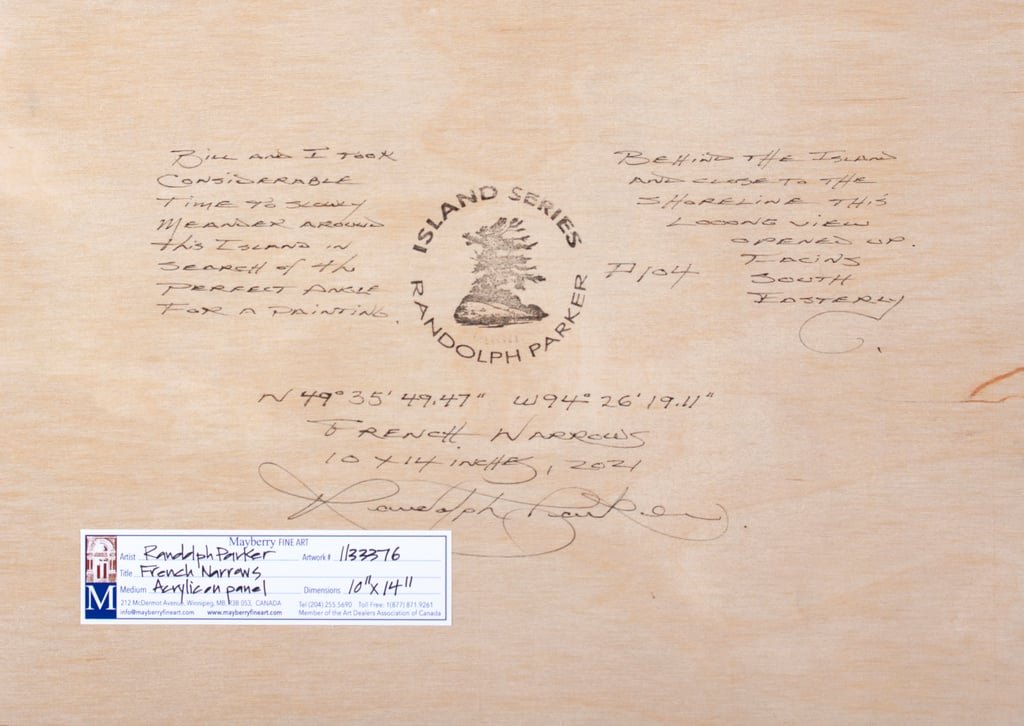 Bill and I took
Considerable
Time to slowly
Meander around
this Island in
search of the
perfect angle
for a painting.
ISLAND SERIES
RANDOLPH PARKER
P104
Behind the Island
and close to the
shoreline this
looong view
opened up.
Facing
South
Easterly
N 49° 35' 49.47" W 94° 26' 19.11"
French Narrows
10 x 14 inches, 2021
Randolph Parker
Mayberry FINE ART
Artist Randolph Parker Artwork # 1133376
Title French Narrows
Medium Acrylic on panel Dimensions 10" x 14"
M
212 McDermot Avenue, Winnipeg, MB, R3B 0S3, CANADA Tel (204) 255.5690 Toll Free: 1(877) 871.9261
info@mayberryfineart.com www.mayberryfineart.com Member of the Art Dealers Association of Canada